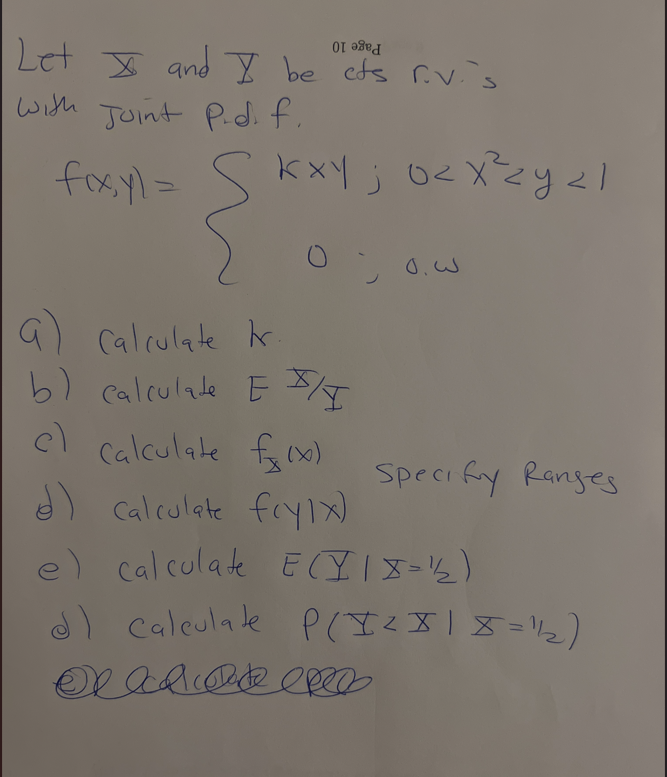 Page 10
Let X and Y be cts r.v.'s
with Joint P.d.f.
f(x,y) = { kxy ; 0 < x² < y < 1
0 ; o.w
a) calculate k.
b) calculate E X/Y
c) calculate f_X(x)
Specify Ranges
d) calculate f(y|x)
e) calculate E(Y | X = 1/2)
d) calculate P(Y < X | X = 1/2)